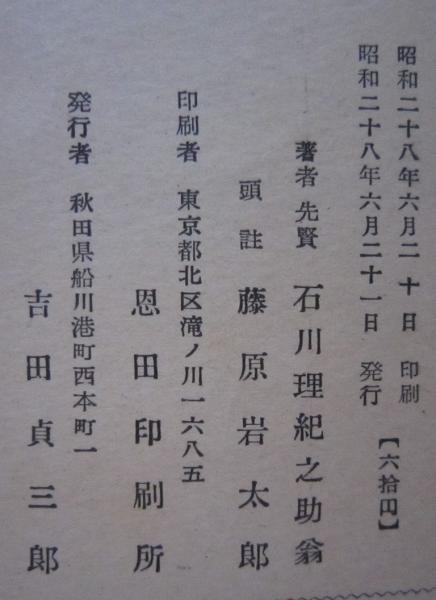 昭和二十八年六月二十日　印刷
昭和二十八年六月二十一日　発行
【六拾円】
著者先賢　石川理紀之助翁
頭註　藤原岩太郎
印刷者　東京都北区滝ノ川一六八五
恩田印刷所
発行者　秋田県船川港町西本町一
吉田貞三郎